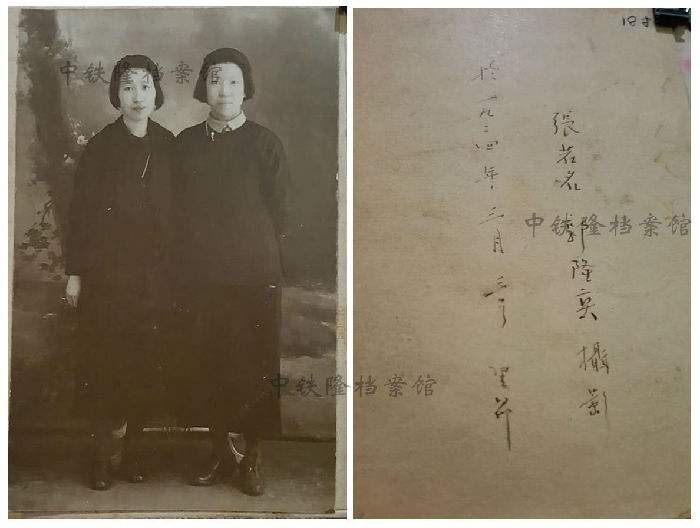 中铁隆档案馆
張若名 郭隆真 攝影
於一九二四年三月 里昂
中铁隆档案馆
中铁隆档案馆